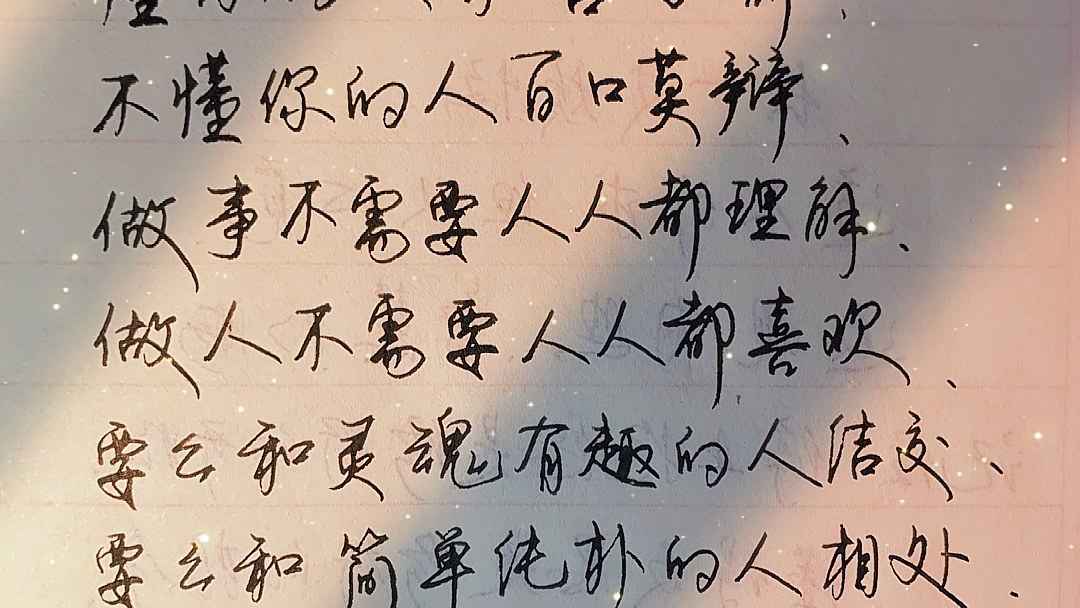 不懂你的人百口莫辩、
做事不需要人人都理解、
做人不需要人人都喜欢、
要么和灵魂有趣的人结交、
要么和简单纯朴的人相处.